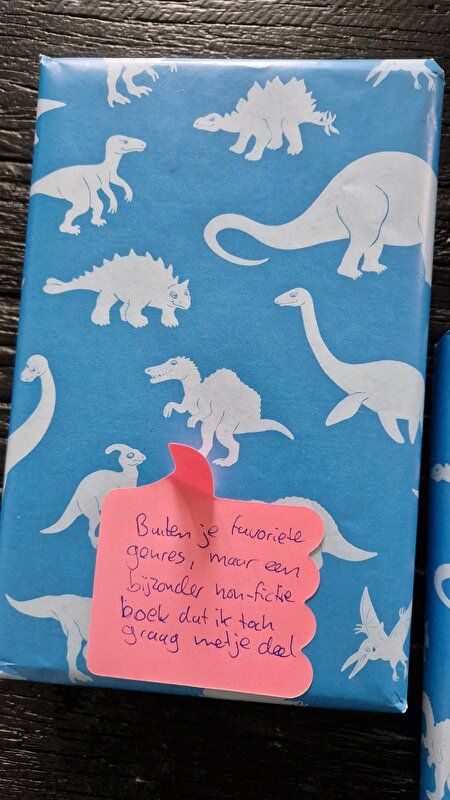 Buiten je favoriete
genres, maar een
bijzonder non-fictie
boek dat ik toch
graag met je deel